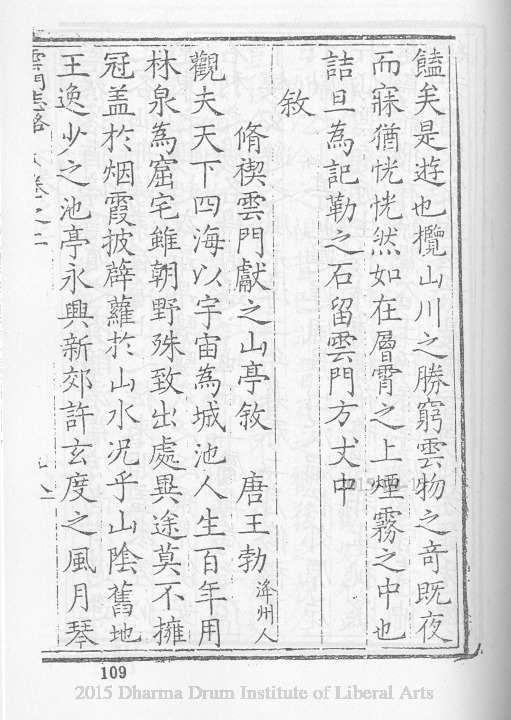 饁矣是遊也攬山川之勝窮雲物之奇既夜
而寐猶恍恍然如在層霄之上煙霧之中也
詰旦為記勒之石留雲門方丈中
敘
脩禊雲門獻之山亭敘 唐王勃 洚州人
觀夫天下四海以宇宙為城池人生百年用
林泉為窟宅雖朝野殊致出處異途莫不擁
冠盖於烟霞披薜蘿於山水况乎山陰舊地
王逸少之池亭永興新郊許玄度之風月琴
雲門志略 卷之二
109
2015 Dharma Drum Institute of Liberal Arts